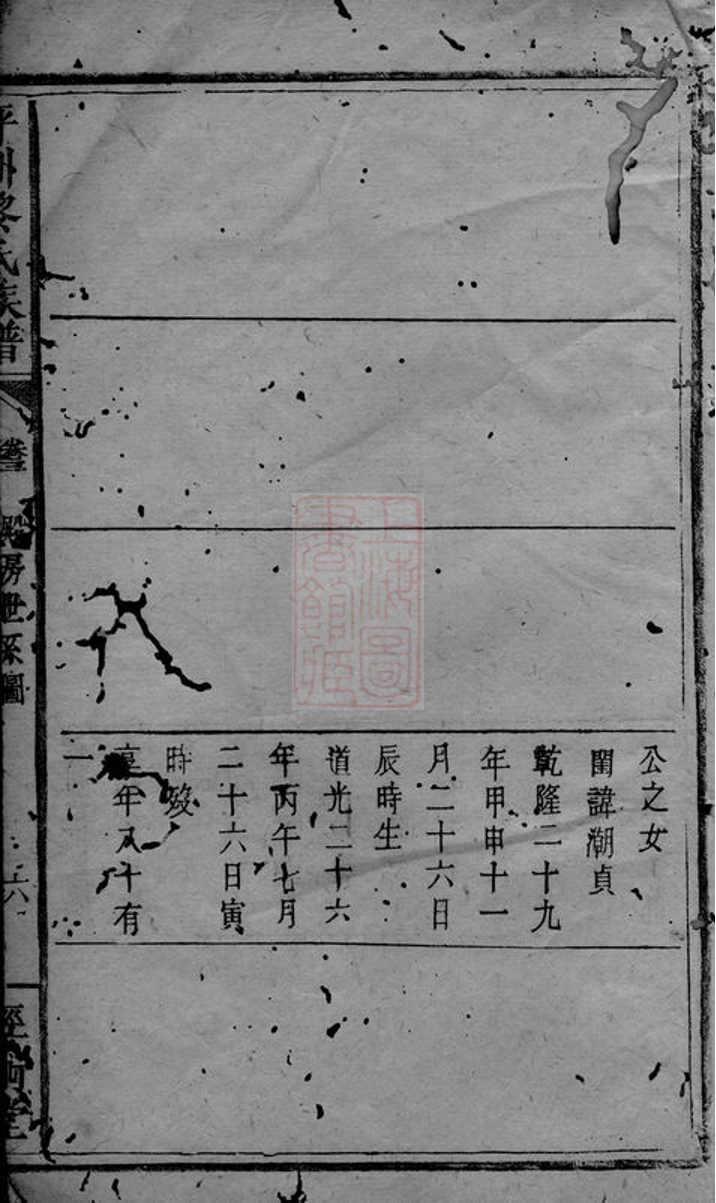 公之女
閨諱潮貞
乾隆二十九
年甲申十一
月二十六日
辰時生
道光二十六
年丙午七月
二十六日寅
時歿
享年八十有
一
平州黎氏族譜
卷三
房世系圖
六
堂
上海圖
書館藏